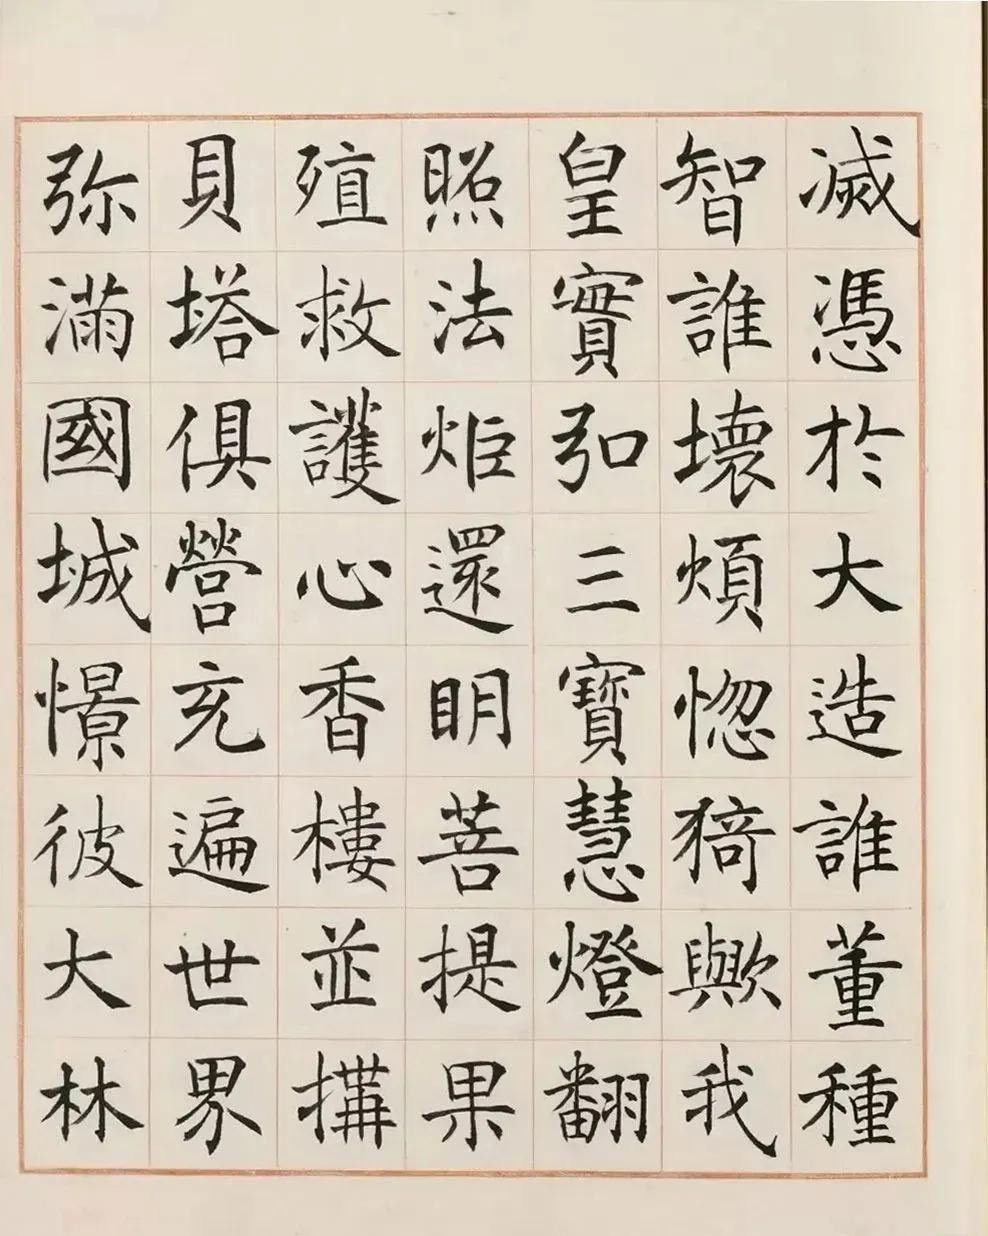 滅憑於大造誰董種
智誰壞煩惚猗歟我
皇實弘三寶慧燈翻
照法炬還明菩提果
殖救護心香樓並搆
貝塔俱營充遍世界
弥滿國城憬彼大林